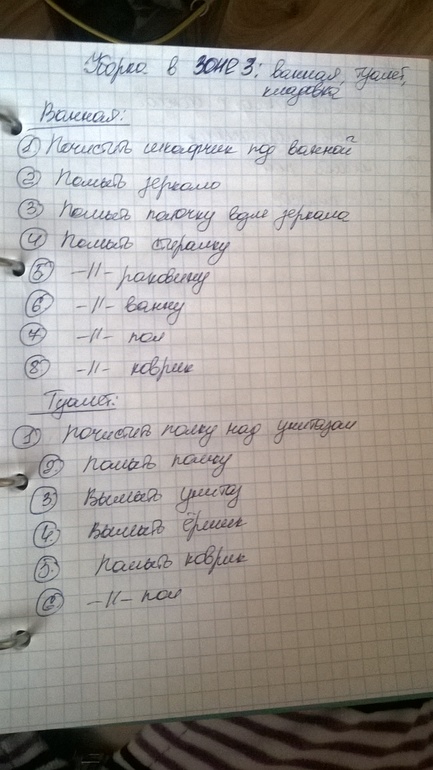 Уборка в зоне 3: ванная, туалет,
кладовка
Ванная:
1 Почистить шкафчик под ванной
2 Помыть зеркало
3 Помыть полочку возле зеркала
4 Помыть стиралку
5 -//- раковину
6 -//- ванну
7 -//- пол
8 -//- коврик
Туалет:
1 Почистить полку над унитазом
2 Помыть полку
3 Вымыть унитаз
4 Вымыть ёршик
5 Помыть коврик
6 -//- пол